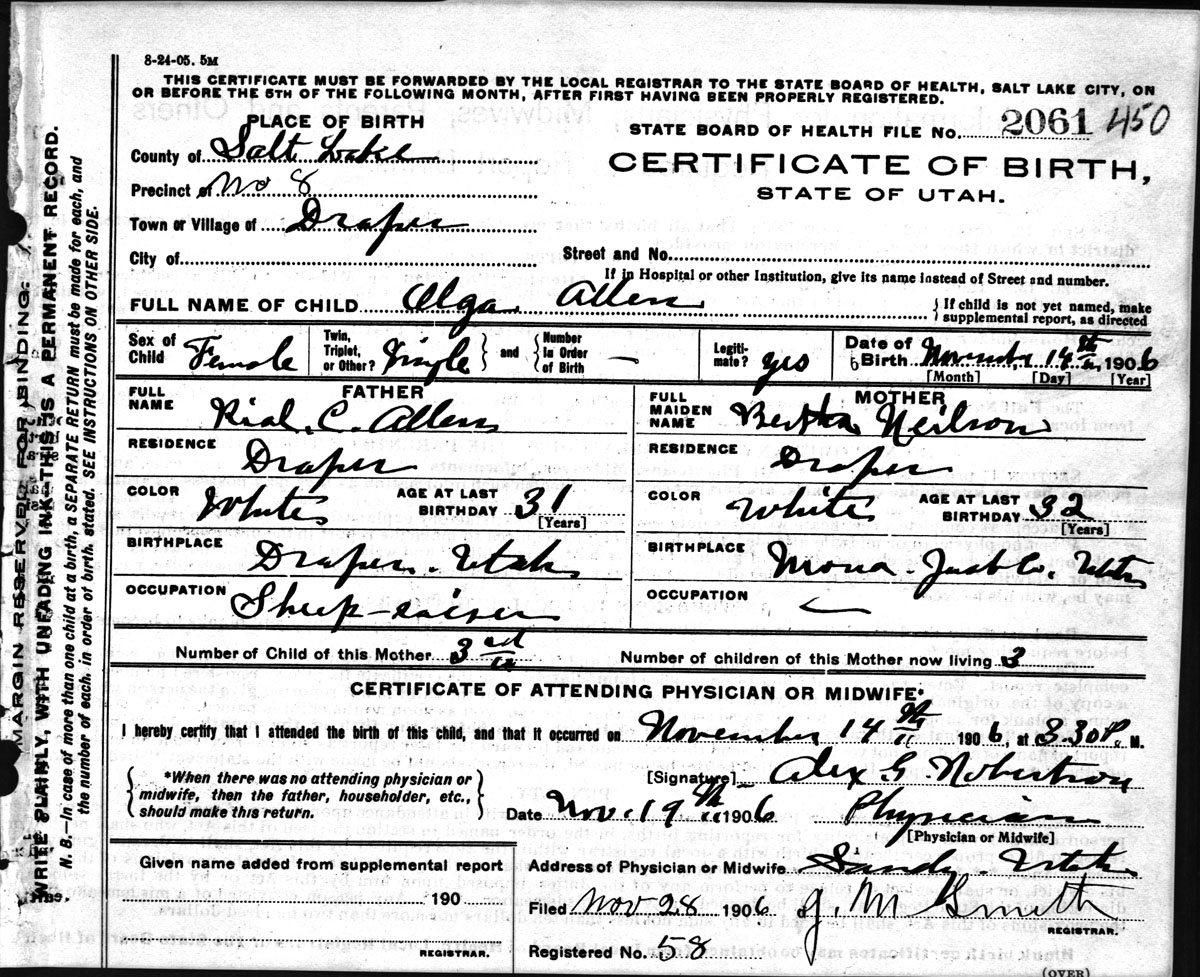 8-24-05. 5M
THIS CERTIFICATE MUST BE FORWARDED BY THE LOCAL REGISTRAR TO THE STATE BOARD OF HEALTH, SALT LAKE CITY, ON
OR BEFORE THE 5TH OF THE FOLLOWING MONTH, AFTER FIRST HAVING BEEN PROPERLY REGISTERED.
PLACE OF BIRTH
STATE BOARD OF HEALTH FILE No. 2061 450
County of Salt Lake
CERTIFICATE OF BIRTH,
Precinct of No 8
STATE OF UTAH.
Town or Village of Draper
City of
Street and No.
If in Hospital or other Institution, give its name instead of Street and number.
FULL NAME OF CHILD Olga Allen
{If child is not yet named, make
supplemental report, as directed
Sex of Child Female
Twin, Triplet, or Other? Single
and
Number In Order of Birth —
Legitimate? yes
Date of Birth November 14th 1906
[Month] [Day] [Year]
FATHER
FULL NAME Rial. C. Allen
RESIDENCE Draper
COLOR White
AGE AT LAST BIRTHDAY 31
[Years]
BIRTHPLACE Draper. Utah
OCCUPATION Sheep-raiser
MOTHER
FULL MAIDEN NAME Bertha Neilson
RESIDENCE Draper
COLOR White
AGE AT LAST BIRTHDAY 32
[Years]
BIRTHPLACE Mona. Juab Co. Utah
OCCUPATION
Number of Child of this Mother 3rd
Number of children of this Mother now living 3
CERTIFICATE OF ATTENDING PHYSICIAN OR MIDWIFE*
I hereby certify that I attended the birth of this child, and that it occurred on November 14th 1906, at 3.30 P. M.
{*When there was no attending physician or
midwife, then the father, householder, etc.,
should make this return.}
[Signature] Alex G. Robertson
Date Nov. 19th 1906 Physician
[Physician or Midwife]
Given name added from supplemental report
190
REGISTRAR.
Address of Physician or Midwife Sandy. Utah
Filed Nov 28 1906 J. M Smith
REGISTRAR.
Registered No. 58
(OVER)
MARGIN RESERVED FOR BINDING.
WRITE PLAINLY, WITH UNFADING INK—THIS IS A PERMANENT RECORD.
N. B.—In case of more than one child at a birth, a SEPARATE RETURN must be made for each, and
the number of each, in order of birth, stated. SEE INSTRUCTIONS ON OTHER SIDE.